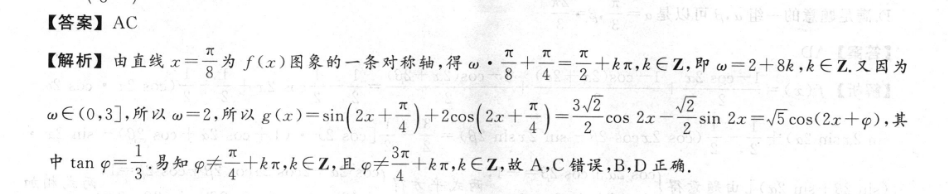 【答案】AC
【解析】由直线 x=π/8 为 f(x)图象的一条对称轴,得 ω·π/8+π/4=π/2+kπ,k∈Z,即 ω=2+8k,k∈Z.又因为
ω∈(0,3],所以 ω=2,所以 g(x)=sin(2x+π/4)+2cos(2x+π/4)=3√2/2 cos 2x-√2/2 sin 2x=√5cos(2x+φ),其
中 tan φ=1/3.易知 φ≠π/4+kπ,k∈Z,且 φ≠3π/4+kπ,k∈Z,故 A,C 错误,B,D 正确.